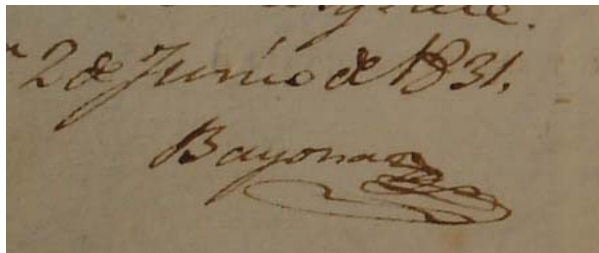 2 de Junio de 1831.
Bayona